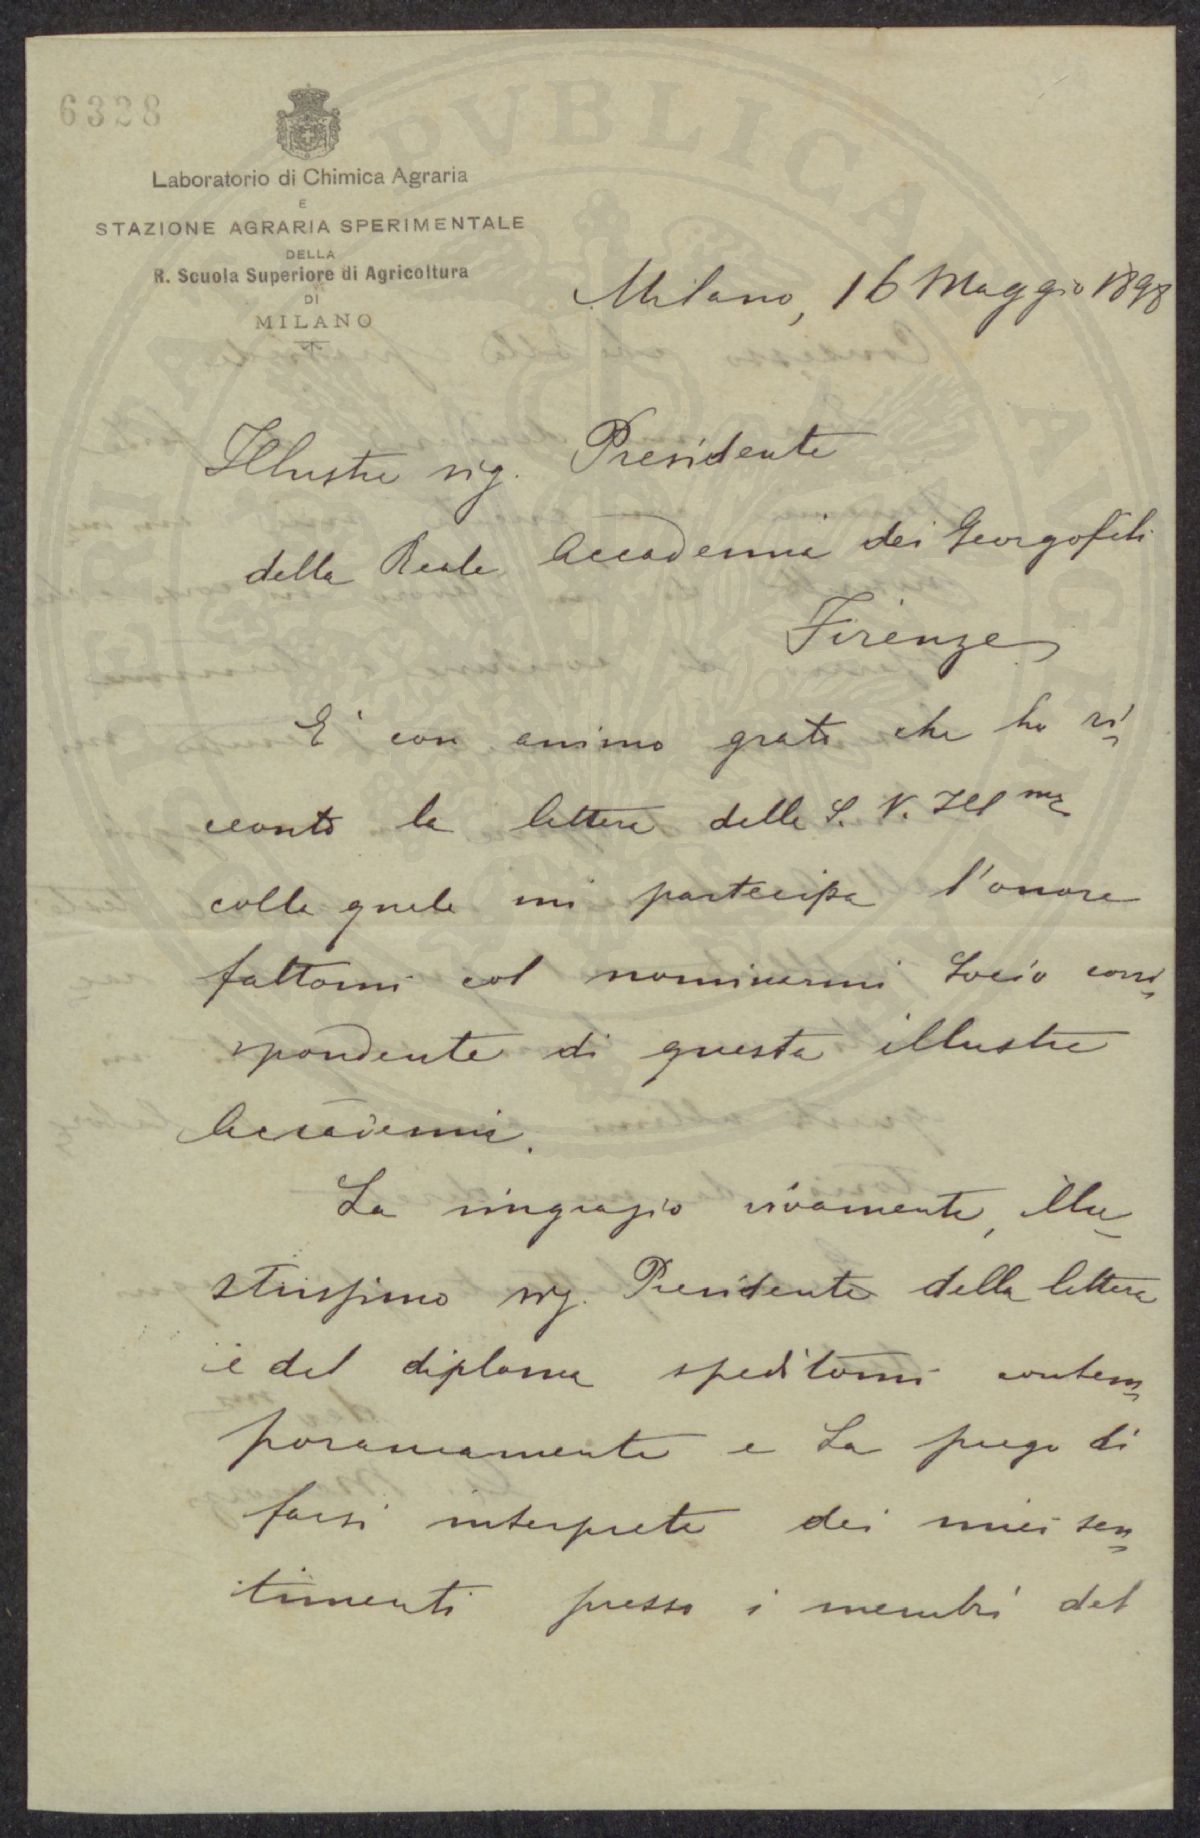 6328
Laboratorio di Chimica Agraria
E
STAZIONE AGRARIA SPERIMENTALE
DELLA
R. Scuola Superiore di Agricoltura
DI
MILANO
Milano, 16 Maggio 1898
Illustre sig. Presidente
della Reale Accademia dei Georgofili
Firenze
E' con animo grato che ho ri=
cevuto la lettera della S. V. Ill ma
colla quale mi partecipa l'onore
fattomi col nominarmi Socio corri=
spondente di questa illustre
Accademia.
La ringrazio vivamente, illu=
strissimo sig. Presidente della lettera
e del diploma speditomi contem=
poraneamente e La prego di
farsi interprete dei miei sen=
timenti presso i membri del